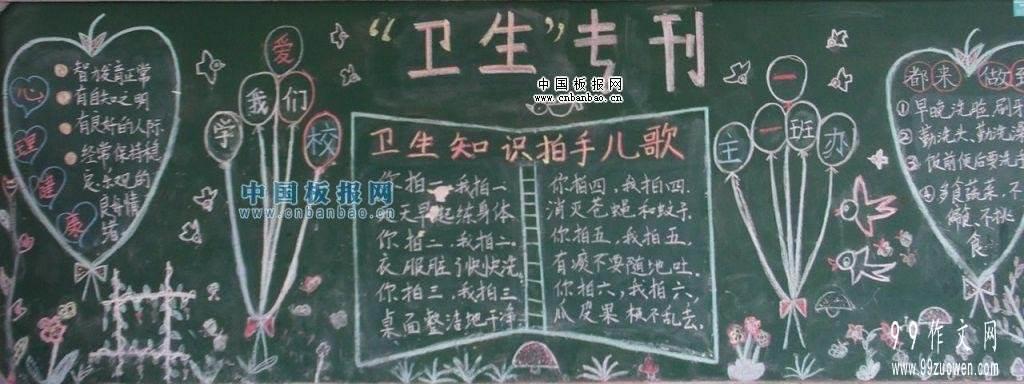 “卫生”专刊
中国板报网
www.cnbanbao.cn
心理健康
智力发育正常
有自知之明
有良好的人际
经常保持稳
定、乐观的
良好情
绪
爱
我们
学校
卫生知识拍手儿歌
你拍一,我拍一,
天天早起练身体。
你拍二,我拍二,
衣服脏了快快洗。
你拍三,我拍三,
桌面整洁地干净。
你拍四,我拍四,
消灭苍蝇和蚊子。
你拍五,我拍五,
有痰不要随地吐。
你拍六,我拍六,
瓜皮果核不乱丢。
中国板报网
www.cnbanbao.cn
一
一班
主办
都来做到
①早晚洗脸刷牙
②勤洗头、勤洗澡
③饭前便后要洗手
④多食蔬菜,不
偏食、不挑
食
99作文网
www.99zuowen.com